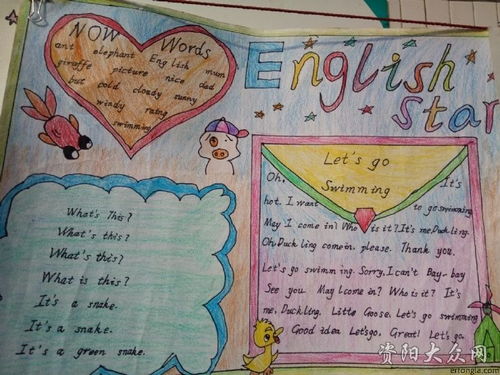 NOW Words
ant elephant English mum
giraffe picture nice dad
but cold cloudy sunny
windy raing
swimming
English
Star
What's This?
What's this?
What's this?
What is this?
It's a snake.
It's a snake.
It's a green snake.
Let's go
Swimming
Oh, It's
hot. I want to go swimming
May I come in? Who is it? It's me, Duckling.
Oh, Duckling come in, please. Thank you.
Let's go swimming. Sorry, I can't Bay-bay
See you. May I come in? Who is it? It's
me, Duckling, Little Goose. Let's go swimming
Good idea Let's go. Great! Let's go.
资阳大众网